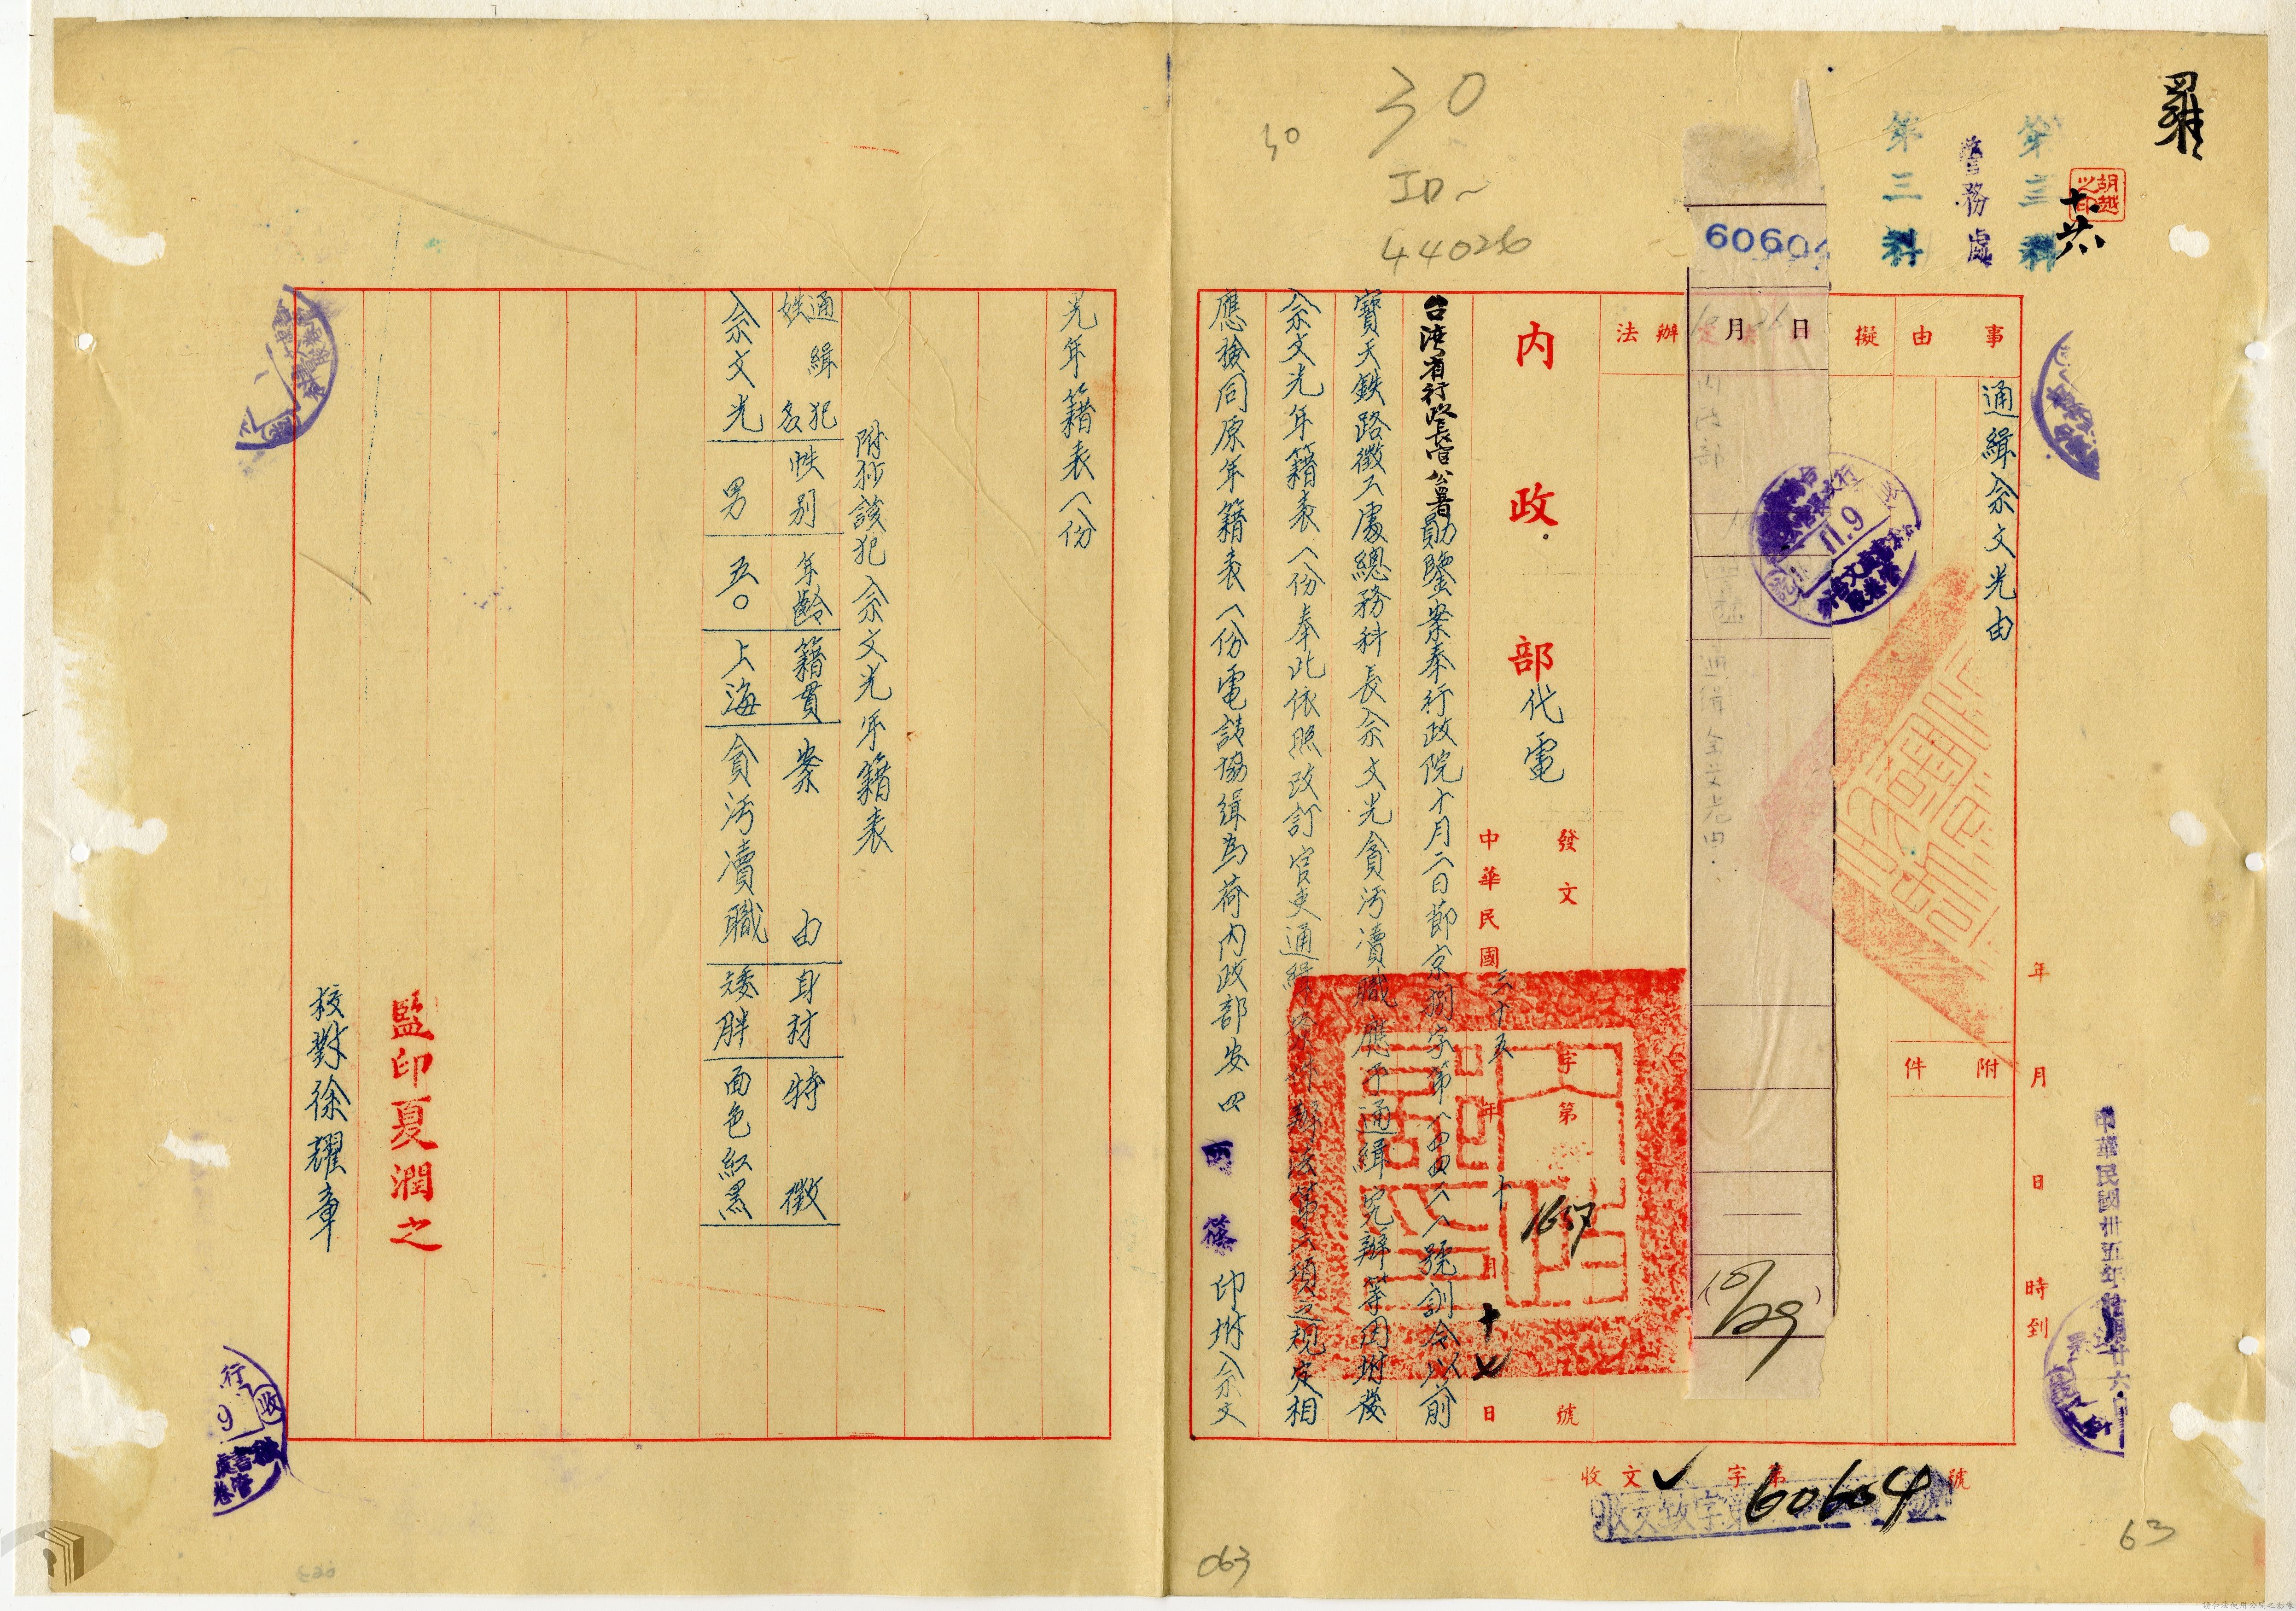 羅
胡越之印
十六
第三科
警務處
第三科
60604
30
30
ID~
44026
事由
擬
辦法
月 日
通緝佘文光由
附件
年 月 日 時到
中華民國卅五年
內政部代電
發文 字第 1617 號
中華民國三十五年十月十七日
台灣省行政長官公署勛鑒案奉行政院十月二日節京捌字第 號訓令以前
寶天鉄路徵工處總務科長佘文光貪污瀆職應予通緝究辦等因坿發
佘文光年籍表一份奉此依照改訂官吏通緝 辦法第六項之規定相
應檢同原年籍表一份電請協緝為荷內政部安四 印坿佘文
光年籍表一份
附抄該犯佘文光年籍表
通緝犯姓名 性別 年齡 籍貫 案由 身材 特徵
佘文光 男 五〇 上海 貪污瀆職 矮胖 面色紅黑
監印夏潤之
校對徐耀章
11.9
10/29
收文 字第 60604 號
063
63